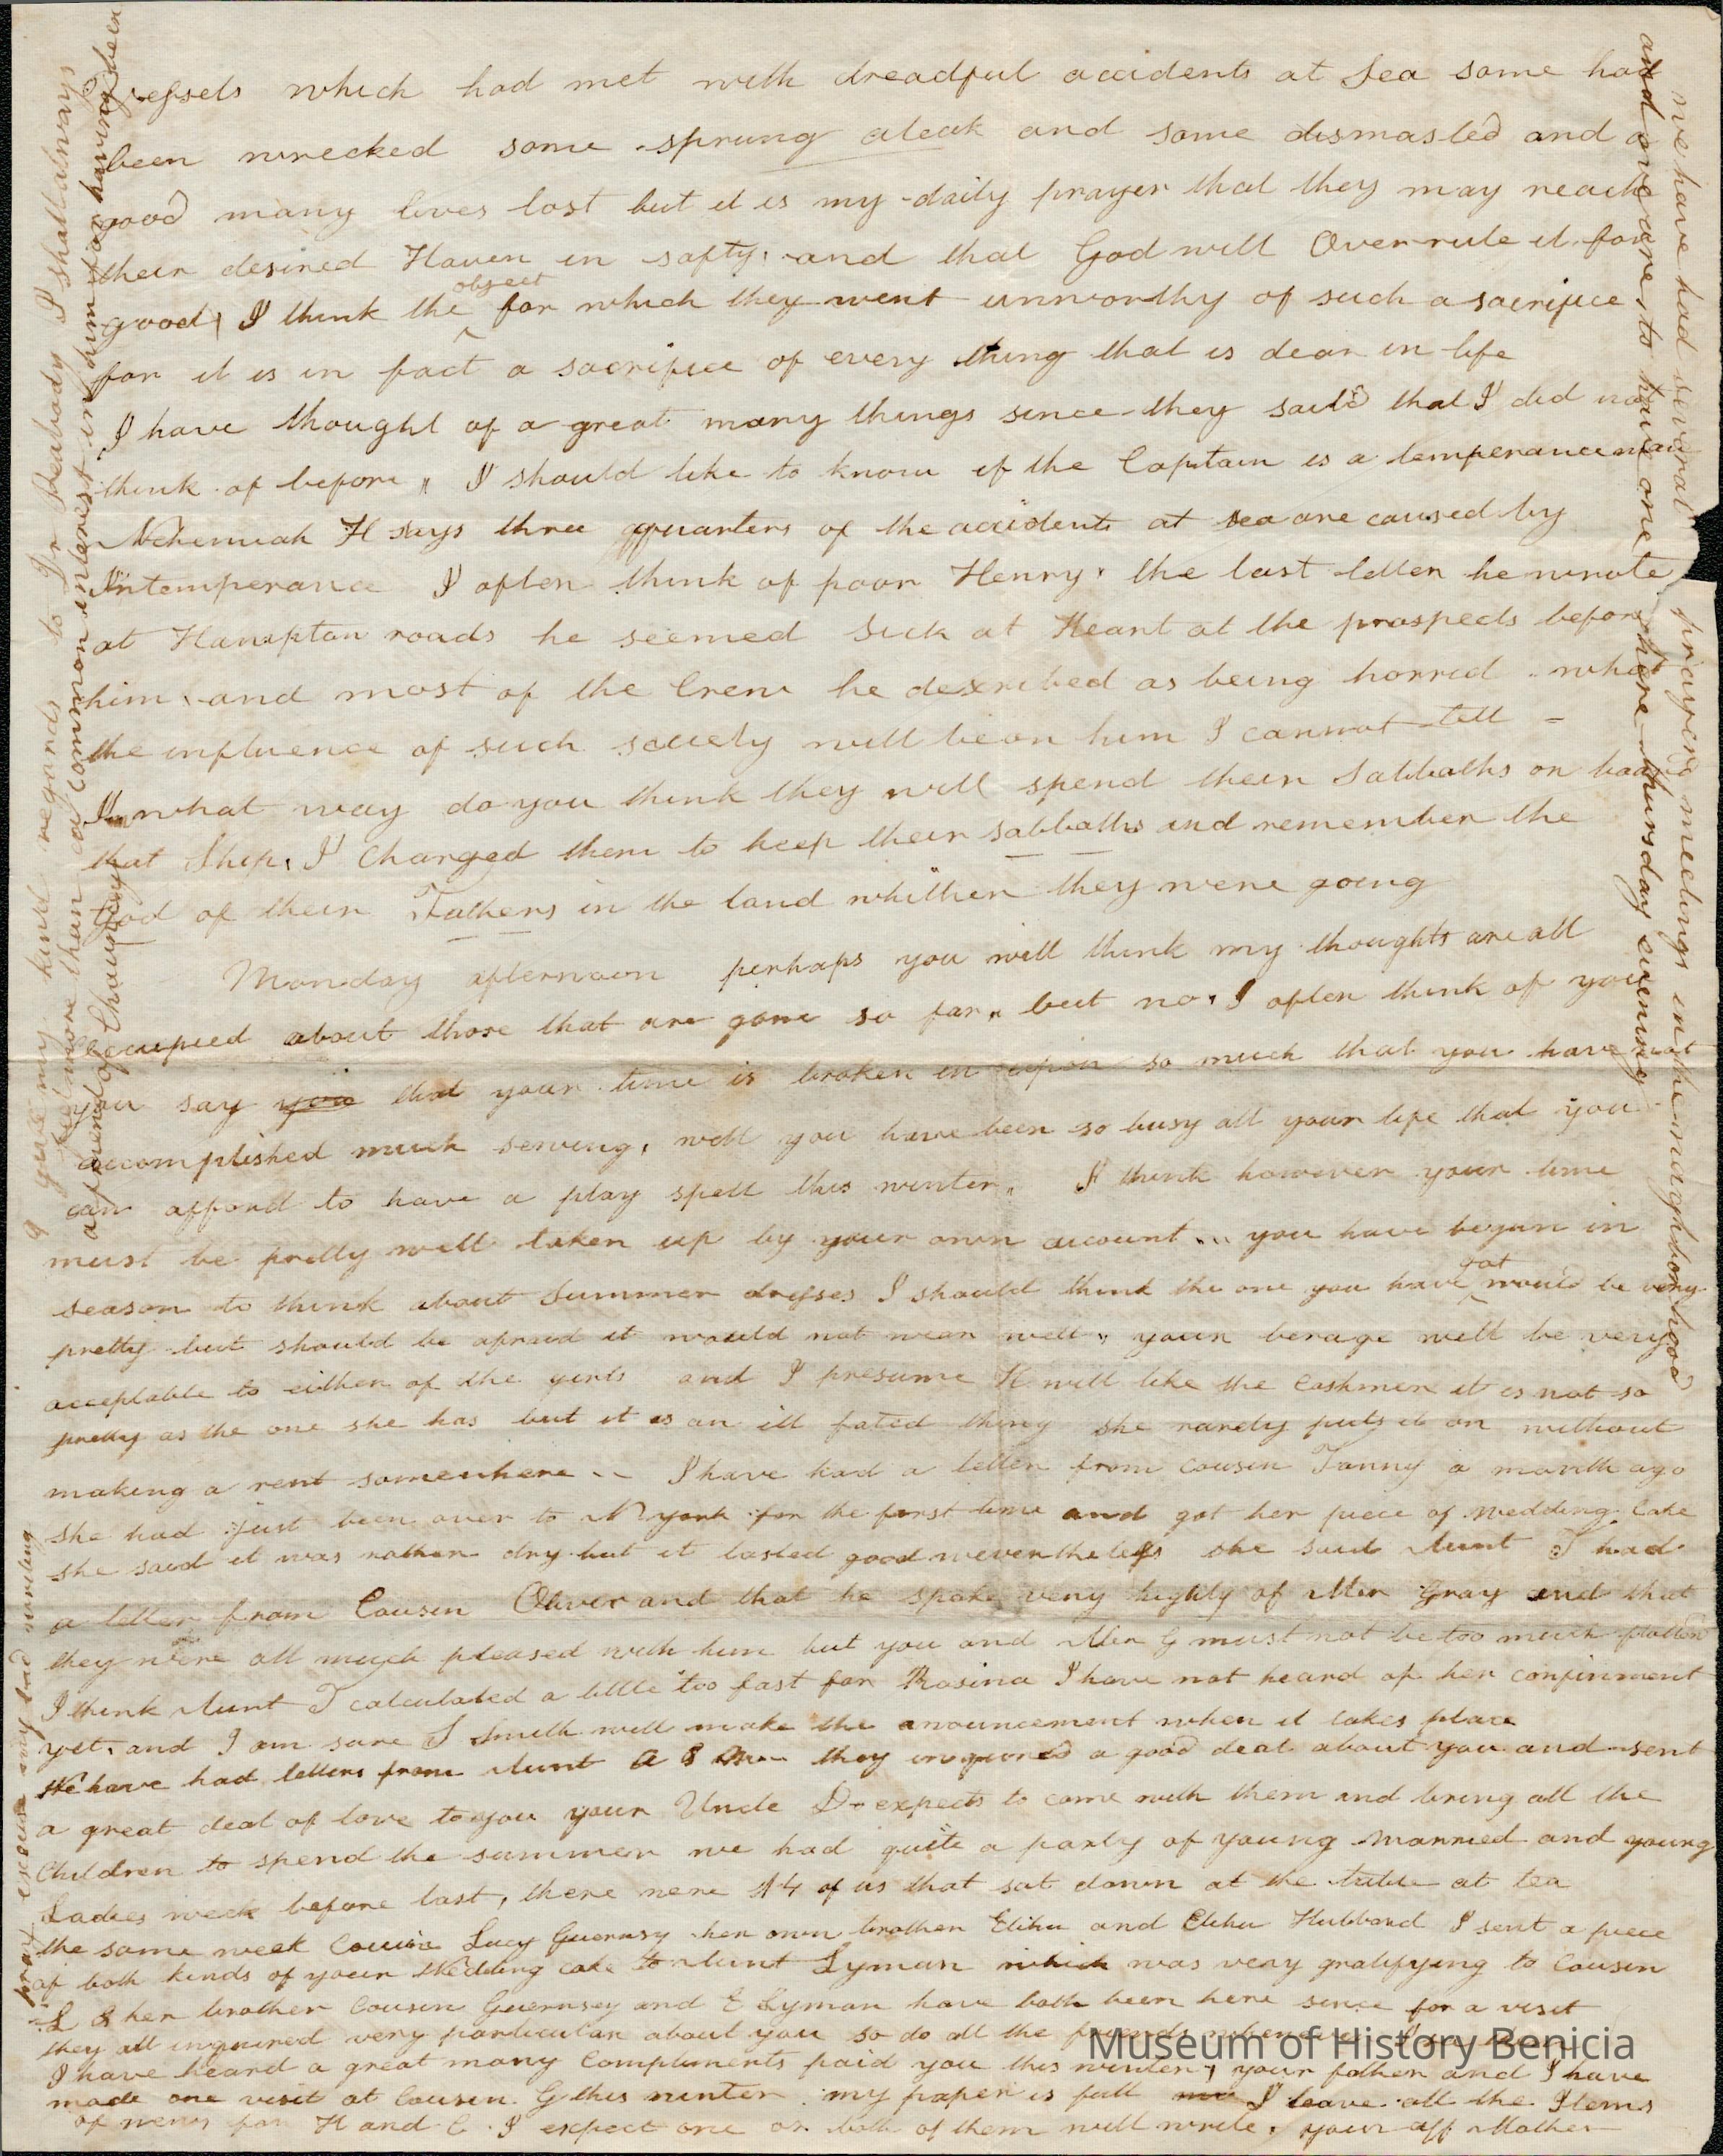 Vessels which had met with dreadful accidents at Sea some had
been wrecked some sprung aleak and some dismasted and a
good many lives lost but it is my daily prayer that they may reach
their desired Haven in safty, and that God will Overrule it for
good, I think the object for which they went unworthy of such a sacrifice
for it is in fact a sacrifice of every thing that is dear in life
I have thought of a great many things since they saild that I did not
think of before, I should like to know if the Captain is a temperance man
Nehemiah H says three quarters of the accidents at sea are caused by
Intemperance I often think of poor Henry, the last letter he wrote
at Hampton roads he seemed Sick at Heart at the prospects before
him, and most of the Crew he described as being horrid. what
the influence of such society will be on him I cannot tell -
In what way do you think they will spend their Sabbaths on board
that Ship, I Charged them to keep their sabbaths and remember the
God of their Fathers in the land whither they were going
Monday afternoon perhaps you will think my thoughts are all
Occupied about those that are gone so far, but no, I often think of you
you say you that your time is broken in upon so much that you have not
accomplished much sewing, well you have been so busy all your life that you
can afford to have a play spell this winter, I think however your time
must be pretty well taken up by your own account... you have begun in
season to think about Summer dresses I should think the one you have got would be very
pretty but should be afraid it would not wear well, your berage will be very
acceptable to either of the girls and I presume H will like the Cashmer it is not so
pretty as the one she has but it is an ill fated thing she rarely puts it on without
making a rent somewhere .. I have had a letter from cousin Fanny a month ago
she had just been over to N york for the first time and got her piece of wedding Cake
she said it was rather dry but it tasted good nevertheless she said Aunt T had
a letter from Cousin Oliver and that he spoke very highly of Mr Gray and that
they were all much pleased with him but you and Mr G must not be too much flatterd
I think Aunt T calculated a little too fast for Rosina I have not heard of her confinment
yet, and I am sure S Smith will make the anouncement when it takes place
We have had letters from Aunt A & they inquired a good deal about you and sent
a great deal of love to you your Uncle D expects to come with them and bring all the
Children to spend the summer we had quite a party of young married and young
Ladies week before last, there were 14 of us that sat down at the table at tea
the same week Cousin Lucy Guernsy her own brother Elihu and Elihu Hubbard I sent a piece
of both kinds of your Wedding cake to Aunt Lyman which was very gratifying to Cousin
L & her brother Cousin Guernsey and E Lyman have both been here since for a visit
they all inquired very particular about you so do all the friends
I have heard a great many Compliments paid you this winter, your father and I have
made one visit at Cousin G this winter my paper is full I leave all the Items
of news for H and C. I expect one or both of them will write, your aff Mother
give my kind regards to Dr Peabody I shall always
feel more than a common interest in him for having been
a friend of Chauncey
pray excuse my bad writing
we have had several prayer meetings in the neighborhood
and we are to have one here thursday evening
Museum of History Benicia